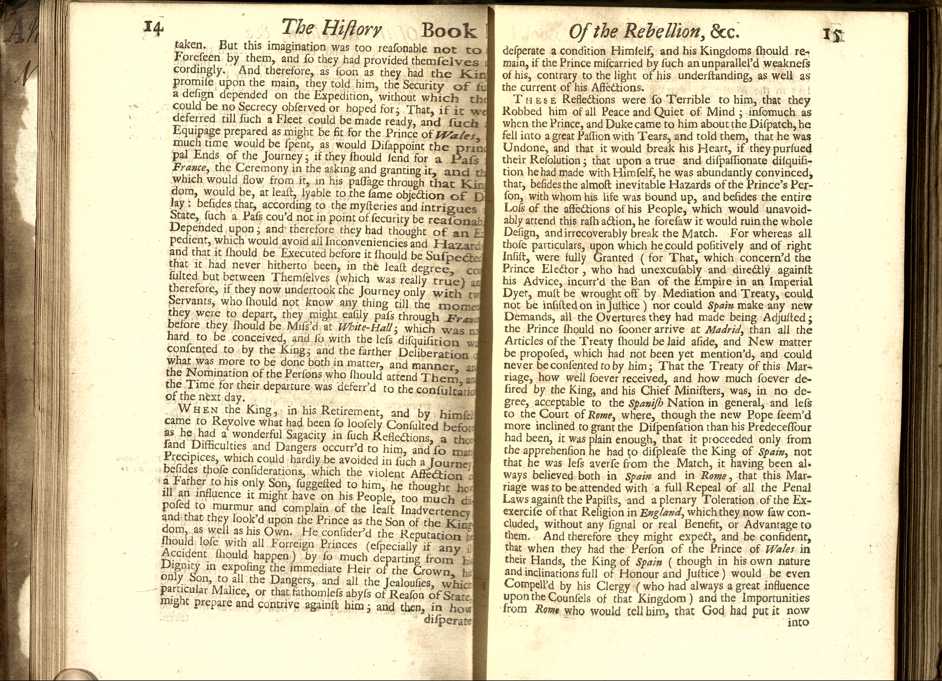 14 The Hiſtory Book
taken. But this imagination was too reaſonable not to
Foreſeen by them, and ſo they had provided themſelves
cordingly. And therefore, as ſoon as they had the Kin
promiſe upon the main, they told him, the Security of ſu
a deſign depended on the Expedition, without which the
could be no Secrecy obſerved or hoped for; That, if it we
deferred till ſuch a Fleet could be made ready, and ſuch
Equipage prepared as might be fit for the Prince of Wales,
much time would be ſpent, as would Diſappoint the prin
pal Ends of the Journey; if they ſhould ſend for a Paſs
France, the Ceremony in the asking and granting it, and th
which would flow from it, in his paſſage through that Kin
dom, would be, at leaſt, lyable to the ſame objection of D
lay: beſides that, according to the myſteries and intrigues
State, ſuch a Paſs cou'd not in point of ſecurity be reaſonab
Depended upon; and therefore they had thought of an E
pedient, which would avoid all Inconveniencies and Hazards
and that it ſhould be Executed before it ſhould be Suſpected
that it had never hitherto been, in the leaſt degree, co
ſulted but between Themſelves (which was really true) a
therefore, if they now undertook the Journey only with tw
Servants, who ſhould not know any thing till the mome
they were to depart, they might eaſily paſs through Franc
before they ſhould be Miſs'd at White-Hall; which was n
hard to be conceived, and ſo with the leſs diſquiſition w
conſented to by the King; and the farther Deliberation
what was more to be done both in matter, and manner, an
the Nomination of the Perſons who ſhould attend Them, an
the Time for their departure was deferr'd to the conſultatio
of the next day.
WHEN the King, in his Retirement, and by himſel
came to Revolve what had been ſo looſely Conſulted before
as he had a wonderful Sagacity in ſuch Reflections, a thou
ſand Difficulties and Dangers occurr'd to him, and ſo man
Precipices, which could hardly be avoided in ſuch a Journey
beſides thoſe conſiderations, which the violent Affection
a Father to his only Son, ſuggeſted to him, he thought how
ill an influence it might have on his People, too much di
poſed to murmur and complain of the leaſt Inadvertency
and that they look'd upon the Prince as the Son of the King
dom, as well as his Own. He conſider'd the Reputation he
ſhould loſe with all Forreign Princes (eſpecially if any il
Accident ſhould happen) by ſo much departing from his
Dignity in expoſing the immediate Heir of the Crown, his
only Son, to all the Dangers, and all the Jealouſies, which
particular Malice, or that fathomleſs abyſs of Reaſon of State,
might prepare and contrive againſt him; and then, in how
deſperate
Of the Rebellion, &c. 15
deſperate a condition Himſelf, and his Kingdoms ſhould re-
main, if the Prince miſcarried by ſuch an unparallel'd weakneſs
of his, contrary to the light of his underſtanding, as well as
the current of his Affections.
THESE Reflections were ſo Terrible to him, that they
Robbed him of all Peace and Quiet of Mind; inſomuch as
when the Prince, and Duke came to him about the Diſpatch, he
fell into a great Paſſion with Tears, and told them, that he was
Undone, and that it would break his Heart, if they purſued
their Reſolution; that upon a true and diſpaſſionate diſquiſi-
tion he had made with Himſelf, he was abundantly convinced,
that, beſides the almoſt inevitable Hazards of the Prince's Per-
ſon, with whom his life was bound up, and beſides the entire
Loſs of the affections of his People, which would unavoid-
ably attend this raſh action, he foreſaw it would ruin the whole
Deſign, and irrecoverably break the Match. For whereas all
thoſe particulars, upon which he could poſitively and of right
Inſiſt, were fully Granted (for That, which concern'd the
Prince Elector, who had unexcuſably and directly againſt
his Advice, incurr'd the Ban of the Empire in an Imperial
Dyet, muſt be wrought off by Mediation and Treaty, could
not be inſiſted on in Juſtice) nor could Spain make any new
Demands, all the Overtures they had made being Adjuſted;
the Prince ſhould no ſooner arrive at Madrid, than all the
Articles of the Treaty ſhould be laid aſide, and New matter
be propoſed, which had not been yet mention'd, and could
never be conſented to by him; That the Treaty of this Mar-
riage, how well ſoever received, and how much ſoever de-
ſired by the King, and his Chief Miniſters, was, in no de-
gree, acceptable to the Spaniſh Nation in general, and leſs
to the Court of Rome, where, though the new Pope ſeem'd
more inclined to grant the Diſpenſation than his Predeceſſour
had been, it was plain enough, that it proceeded only from
the apprehenſion he had to diſpleaſe the King of Spain, not
that he was leſs averſe from the Match, it having been al-
ways believed both in Spain and in Rome, that this Mar-
riage was to be attended with a full Repeal of all the Penal
Laws againſt the Papiſts, and a plenary Toleration of the Ex-
exerciſe of that Religion in England, which they now ſaw con-
cluded, without any ſignal or real Benefit, or Advantage to
them. And therefore they might expect, and be confident,
that when they had the Perſon of the Prince of Wales in
their Hands, the King of Spain (though in his own nature
and inclinations full of Honour and Juſtice) would be even
Compell'd by his Clergy (who had always a great influence
upon the Counſels of that Kingdom) and the Importunities
from Rome who would tell him, that God had put it now
into